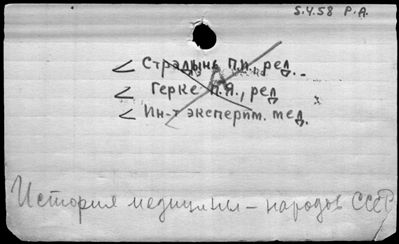 5.4.58 P.A.
< Страдынь П.И., ред.
< Герке П.Я., ред
< Ин-т эксперим. мед.
История медицины - народов СССР